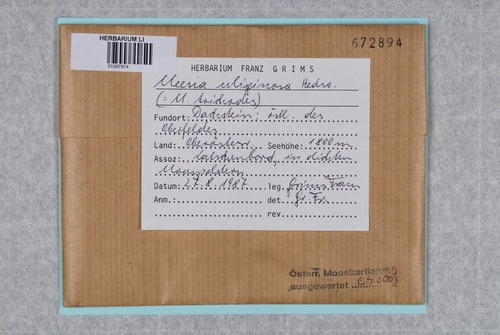 HERBARIUM LI
672894
HERBARIUM FRANZ GRIMS
Meesia uliginosa Hedw.
(= M. trichodes)
Fundort: Dachstein: östl. des
Oberfeldes
Land: Oberösterr. Seehöhe: 1800 m
Assoz: Latschenbord, in dichten
Moospolstern
Datum: 27.8.1987 leg. Grims Franz
Anm.: det. Gr. Fr.
rev.
Österr. Mooskartierung
ausgewertet 2003